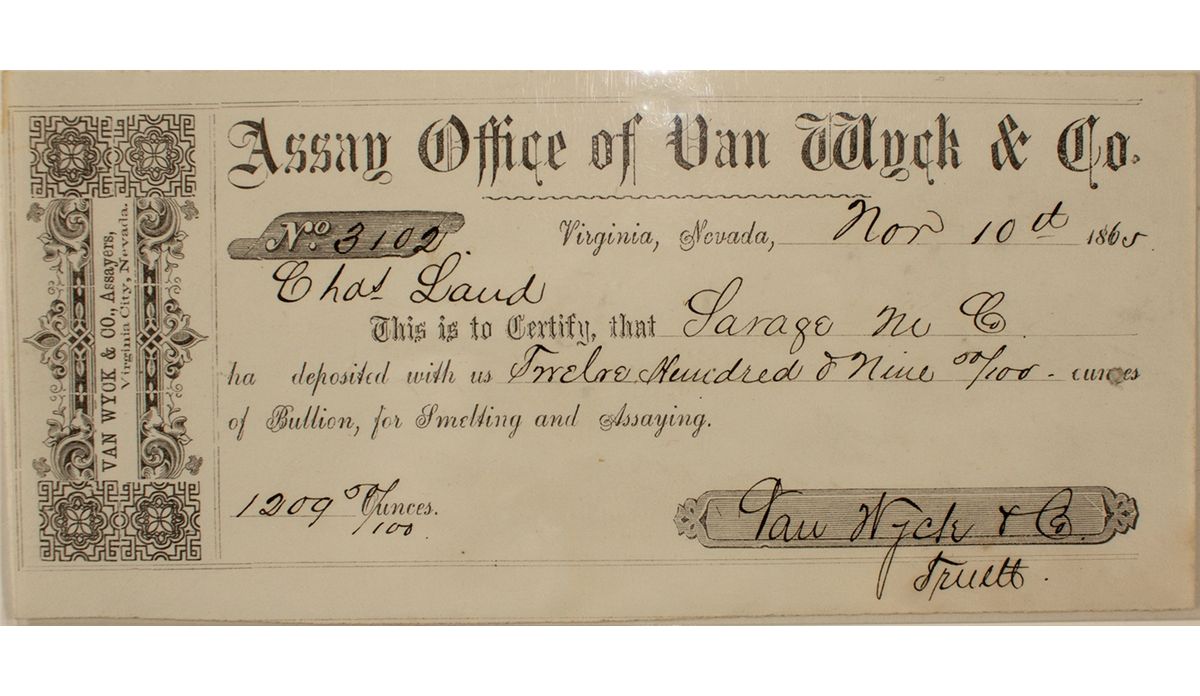 VAN WYCK & CO., Assayers,
Virginia City, Nevada.
Assay Office of Van Wyck & Co.
No. 3102
Virginia, Nevada, Nov 10th 1865
Chas Laud
This is to Certify, that Savage M Co
ha deposited with us Twelve Hundred & Nine 50/100 ounces
of Bullion, for Smelting and Assaying.
1209 50/100 Ounces.
Van Wyck & Co.